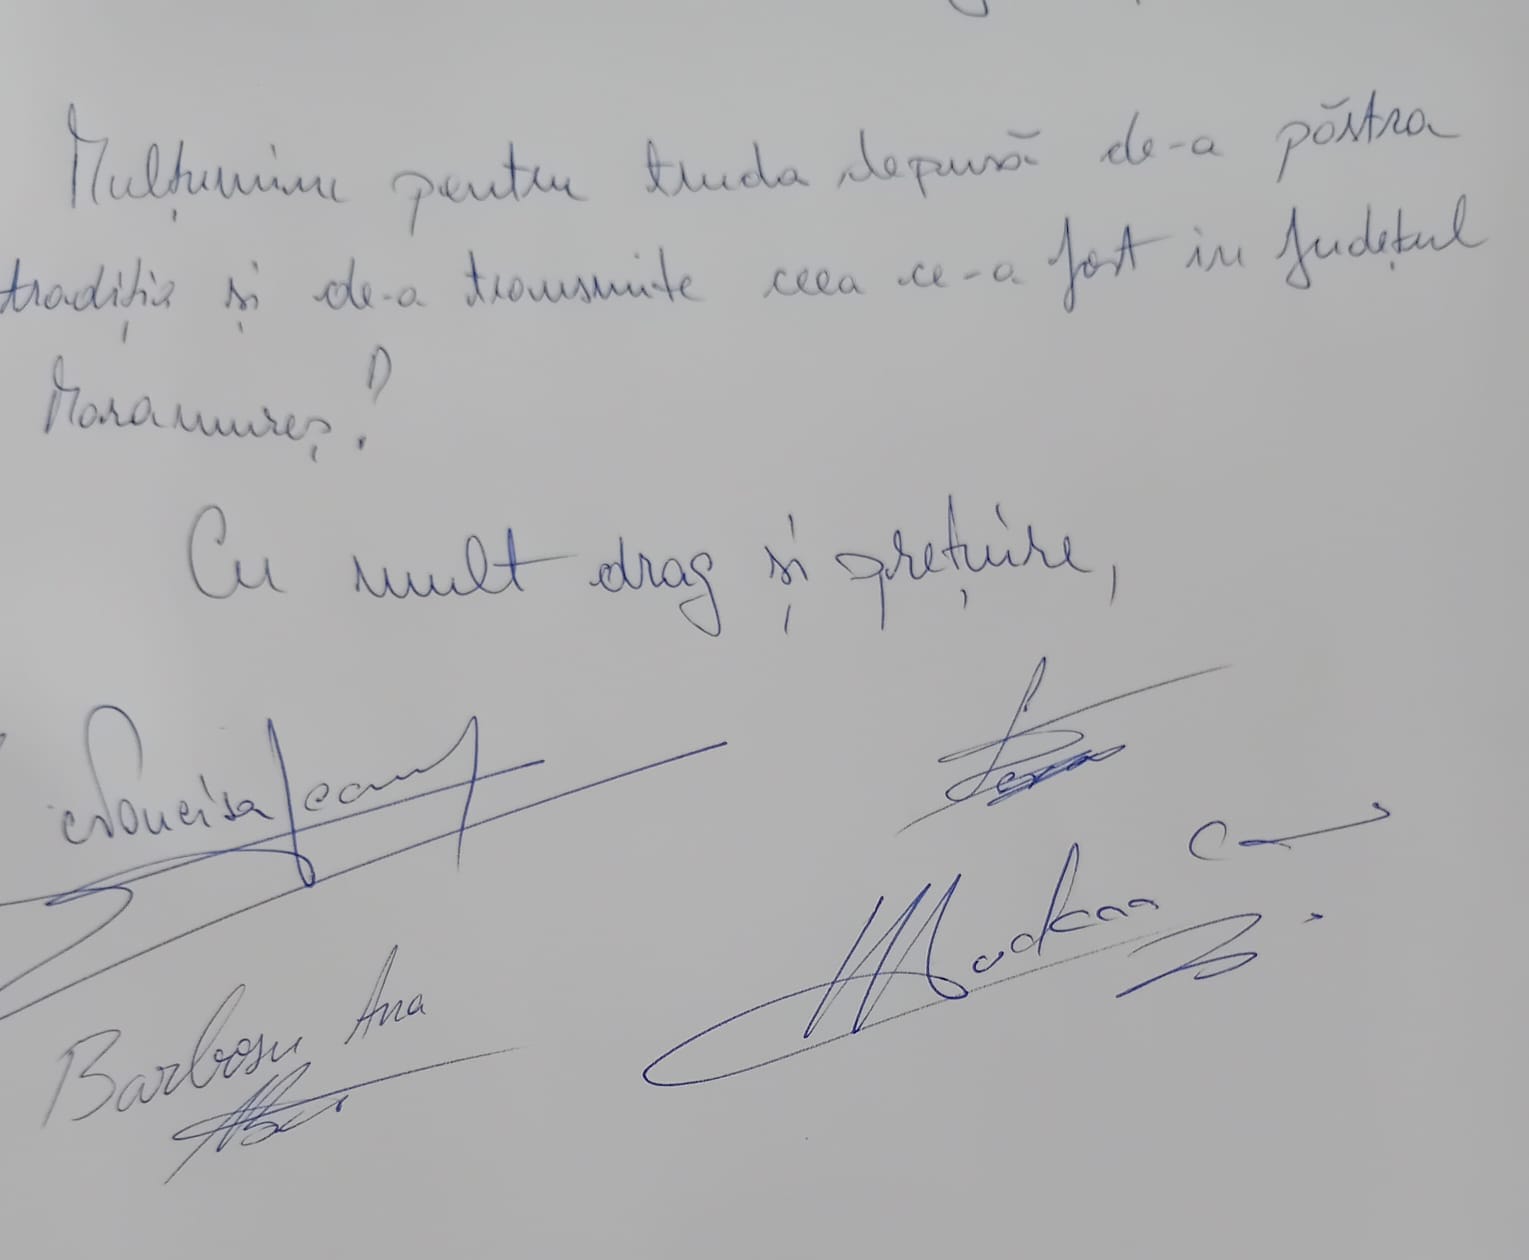 Mulțumim pentru truda depusă de-a păstra
tradiția și de-a transmite ceea ce-a fost in Județul
Maramureș!
Cu mult drag și prețuire,
Barbosu Ana